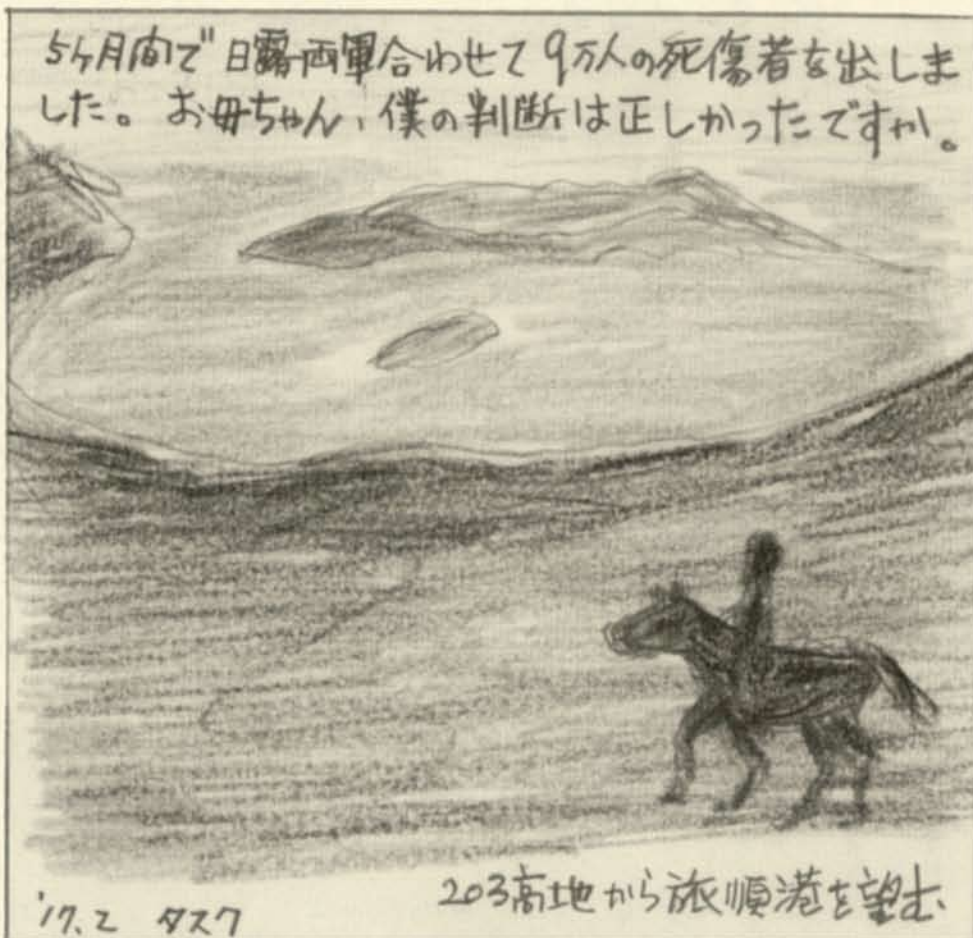 5ヶ月間で日露両軍合わせて9万人の死傷者を出しま
した。お母ちゃん、僕の判断は正しかったですか。
203高地から旅順港を望む
'17.2 タスク